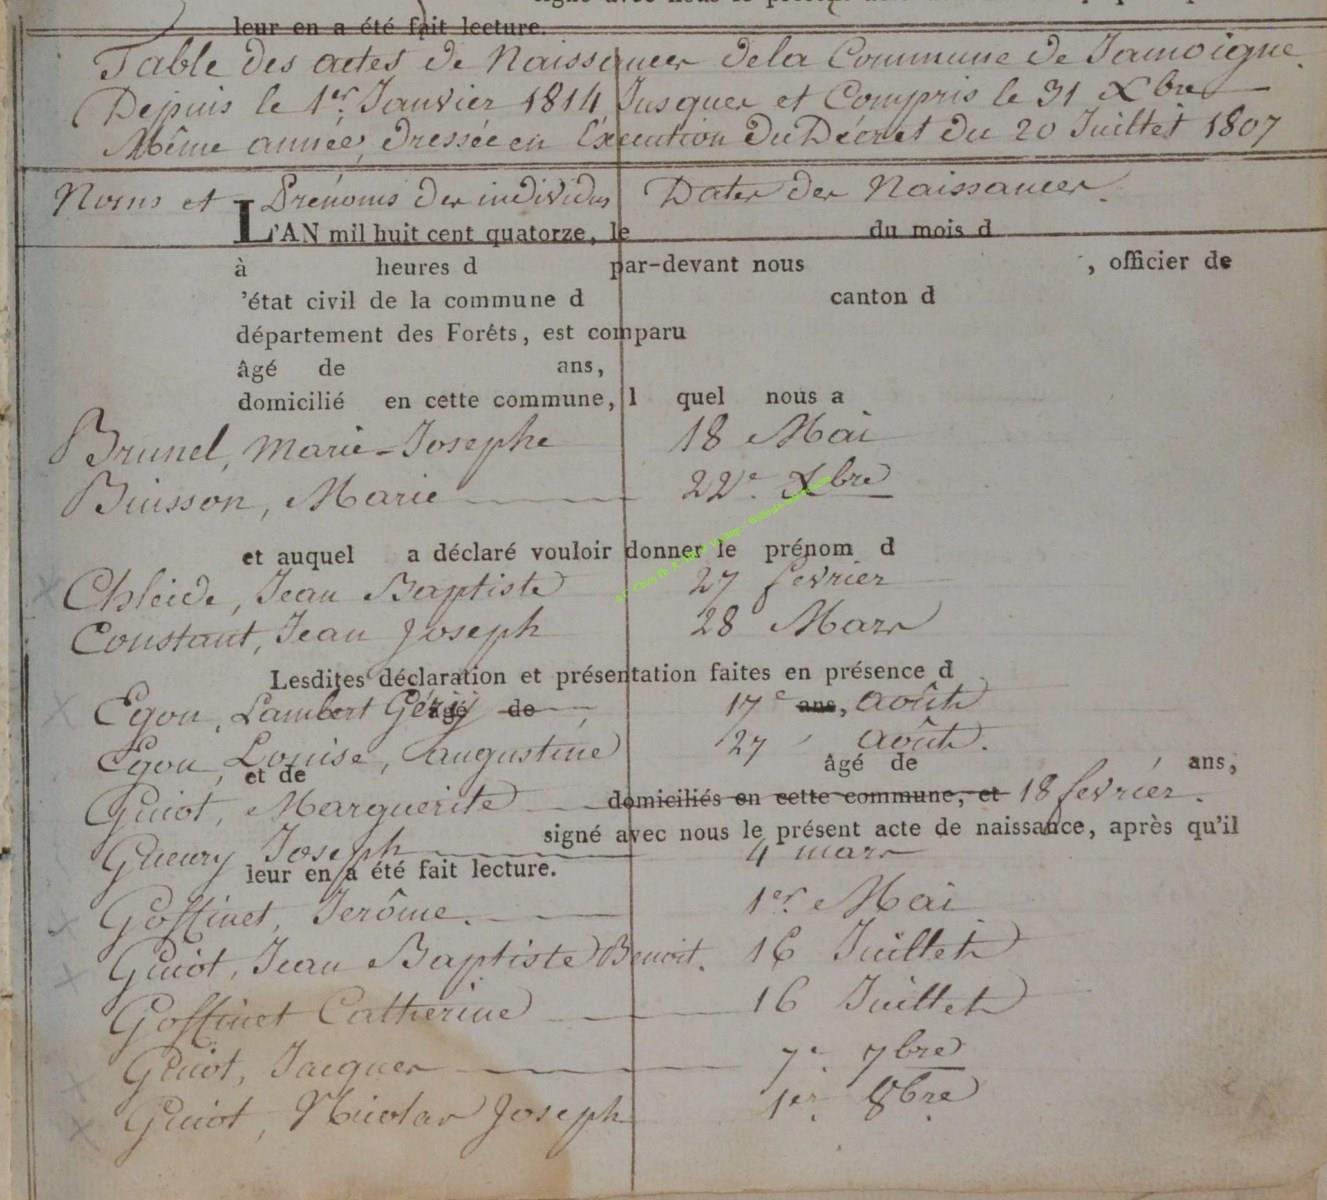 leur en a été fait lecture.
Table des actes de Naissances de la Commune de Jamoigne.
Depuis le 1er. Janvier 1814 Jusques et Compris le 31 Xbre
Même année, dressée en Exécution du Décret du 20 Juillet 1807
Noms et Prénoms des individus Dates des Naissances.
L'AN mil huit cent quatorze, le du mois d
à heures d par-devant nous , officier de
'état civil de la commune d canton d
département des Forêts, est comparu
âgé de ans,
domicilié en cette commune, l quel nous a
Brunel, Marie-Josephe 18 Mai
Buisson, Marie 22e. Xbre
et auquel a déclaré vouloir donner le prénom d
Chleide, Jean Baptiste 27 fevrier
Constant, Jean Joseph 28 Mars
Lesdites déclaration et présentation faites en présence d
Egon, Lambert Géry âgé de 17e ans, Août
Egon, Louise, augustine 27 Août.
et de âgé de ans,
Guiot, Marguerite domiciliés en cette commune, et 18 fevrier.
signé avec nous le présent acte de naissance, après qu'il
Gueury Joseph 4 mars
leur en a été fait lecture.
Goffinet, Jerôme. 1er. Mai
Guiot, Jean Baptiste Benoit. 16 Juillet
Goffinet Catherine 16 Juillet
Guiot, Jacques 7e. 7bre
Guiot, Nicolas Joseph 1er. 8bre